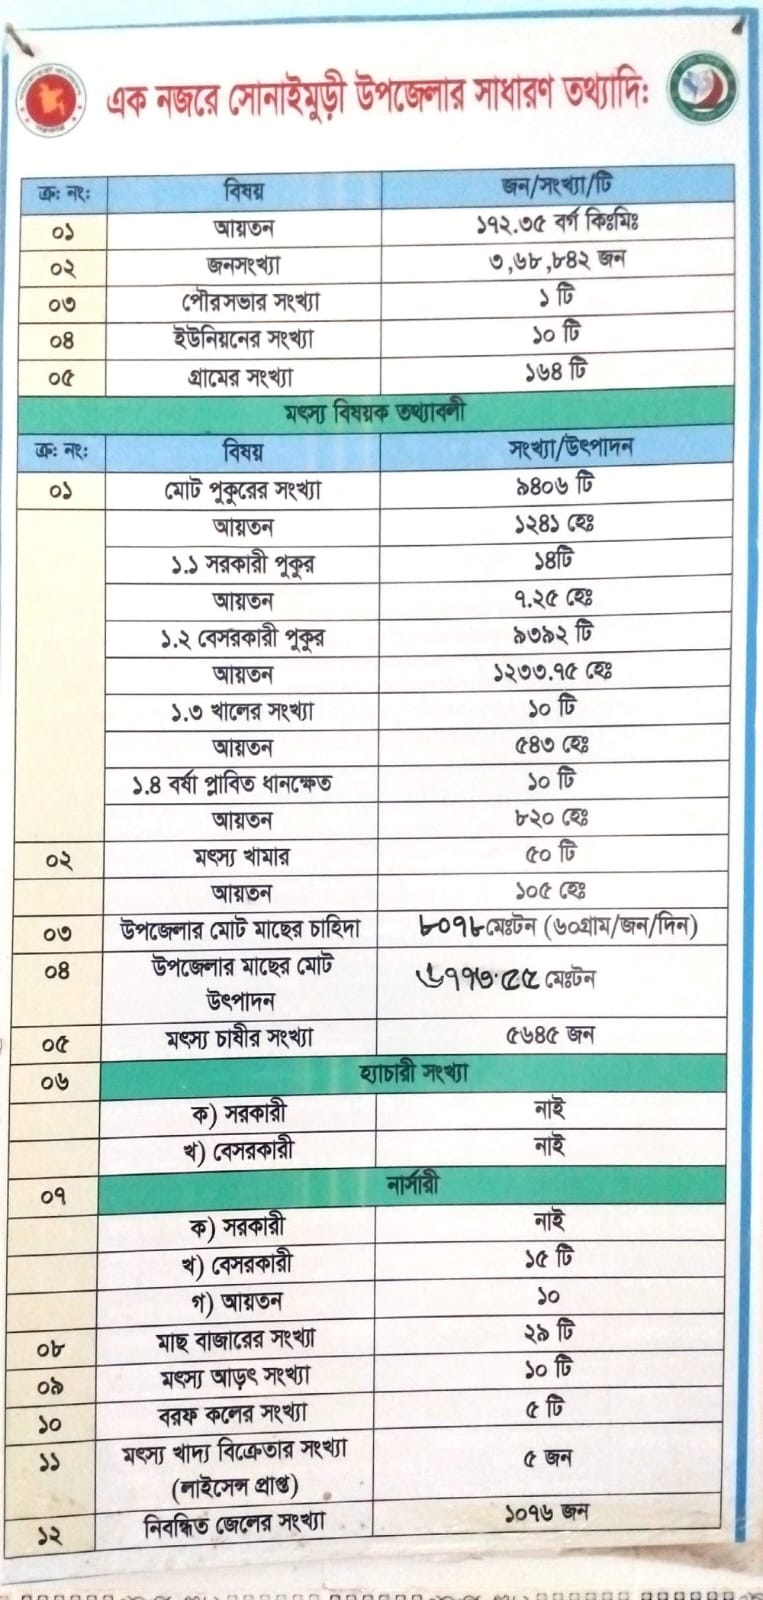 এক নজরে সোনাইমুড়ী উপজেলার সাধারণ তথ্যাদি:
ক্র: নং: বিষয় জন/সংখ্যা/টি
০১ আয়তন ১৭২.৩৫ বর্গ কিঃমিঃ
০২ জনসংখ্যা ৩,৬৮,৮৪২ জন
০৩ পৌরসভার সংখ্যা ১ টি
০৪ ইউনিয়নের সংখ্যা ১০ টি
০৫ গ্রামের সংখ্যা ১৬৪ টি
মৎস্য বিষয়ক তথ্যাবলী
ক্র: নং: বিষয় সংখ্যা/উৎপাদন
০১ মোট পুকুরের সংখ্যা ৯৪০৬ টি
আয়তন ১২৪১ হেঃ
১.১ সরকারী পুকুর ১৪টি
আয়তন ৭.২৫ হেঃ
১.২ বেসরকারী পুকুর ৯৩৯২ টি
আয়তন ১২৩৩.৭৫ হেঃ
১.৩ খালের সংখ্যা ১০ টি
আয়তন ৫৪৩ হেঃ
১.৪ বর্ষা প্লাবিত ধানক্ষেত ১০ টি
আয়তন ৮২০ হেঃ
০২ মৎস্য খামার ৫০ টি
আয়তন ১০৫ হেঃ
০৩ উপজেলার মোট মাছের চাহিদা ৮০৭৮মেঃটন (৬০গ্রাম/জন/দিন)
০৪ উপজেলার মাছের মোট
উৎপাদন ৬৭৭৩.৫৫ মেঃটন
০৫ মৎস্য চাষীর সংখ্যা ৫৬৪৫ জন
০৬ হ্যাচারী সংখ্যা
ক) সরকারী নাই
খ) বেসরকারী নাই
০৭ নার্সারী
ক) সরকারী নাই
খ) বেসরকারী ১৫ টি
গ) আয়তন ১০
০৮ মাছ বাজারের সংখ্যা ২৯ টি
০৯ মৎস্য আড়ৎ সংখ্যা ১০ টি
১০ বরফ কলের সংখ্যা ৫ টি
১১ মৎস্য খাদ্য বিক্রেতার সংখ্যা
(লাইসেন্স প্রাপ্ত) ৫ জন
১২ নিবন্ধিত জেলের সংখ্যা ১০৭৬ জন